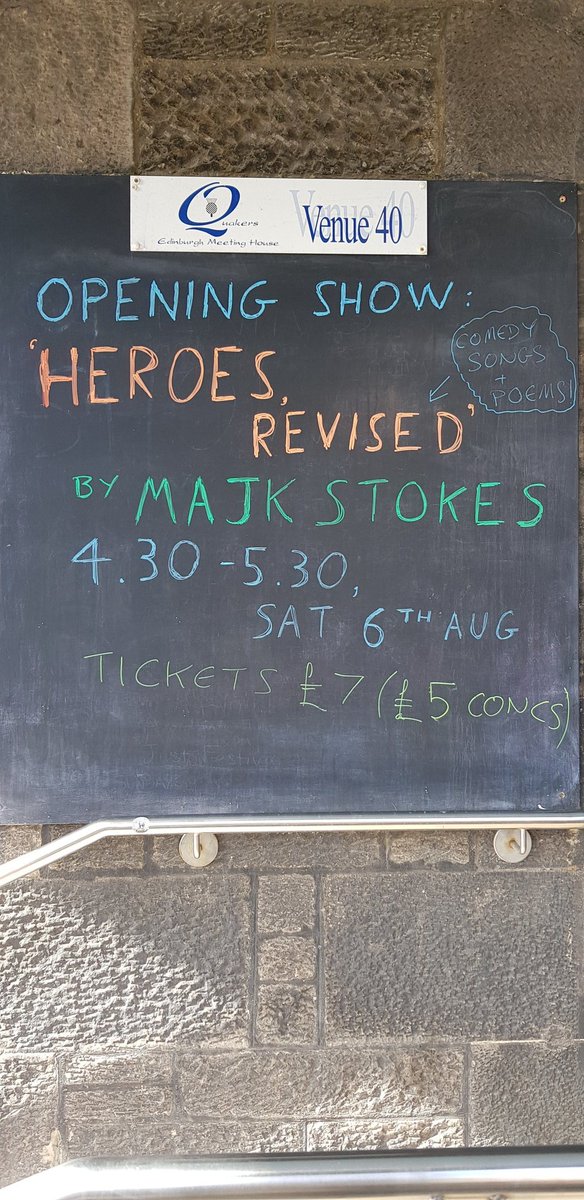 Quakers
Edinburgh Meeting House
Venue 40
OPENING SHOW:
'HEROES,
REVISED'
COMEDY
SONGS
+
POEMS!
BY MAJK STOKES
4.30-5.30,
SAT 6TH AUG
TICKETS £7 (£5 CONCS)